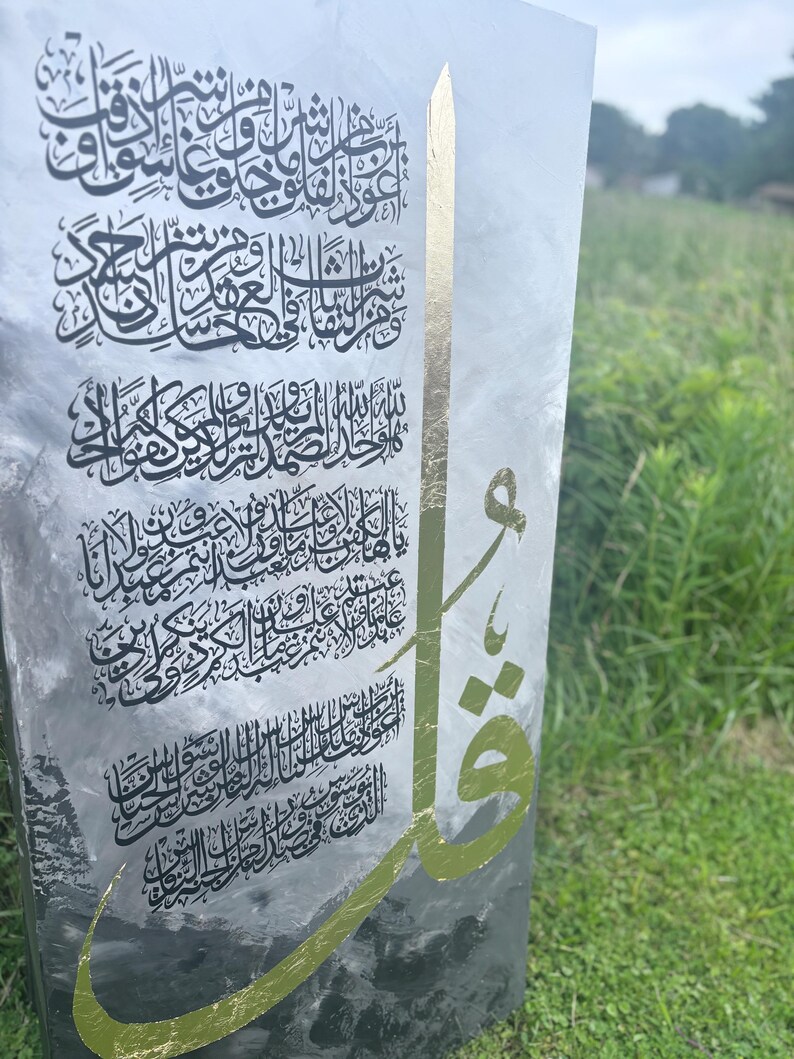 قُلْ
أعوذ برب الفلق من شر ما خلق ومن شر غاسق إذا وقب
ومن شر النفاثات في العقد ومن شر حاسد إذا حسد
هو الله أحد الله الصمد لم يلد ولم يولد ولم يكن له كفوا أحد
يا أيها الكافرون لا أعبد ما تعبدون ولا أنتم عابدون ما أعبد ولا أنا
عابد ما عبدتم ولا أنتم عابدون ما أعبد لكم دينكم ولي دين
أعوذ برب الناس ملك الناس إله الناس من شر الوسواس الخناس
الذي يوسوس في صدور الناس من الجنة والناس